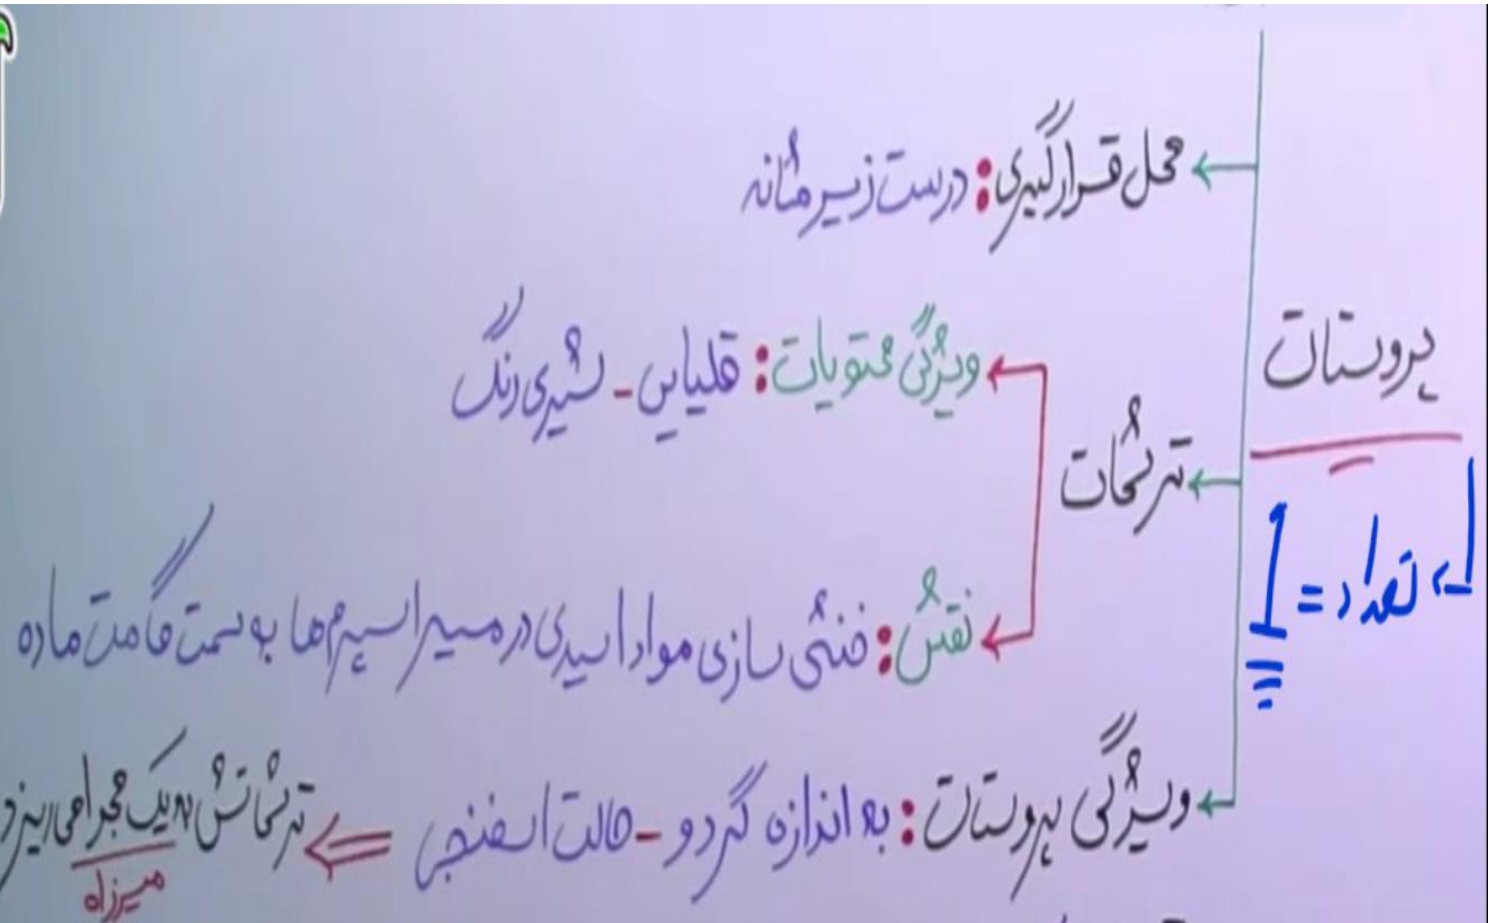 محل قرارگیری: درست زیر مثانه
پروستات
تعداد = 1
ترشحات
ویژگی محتویات: قلیایی - شیری رنگ
نقش: خنثی سازی مواد اسیدی در مسیر اسپرم ها به سمت گامت ماده
ویژگی پروستات: به اندازه گردو - حالت اسفنجی
ترشحاتش به یک مجرا می ریزد
میزراه